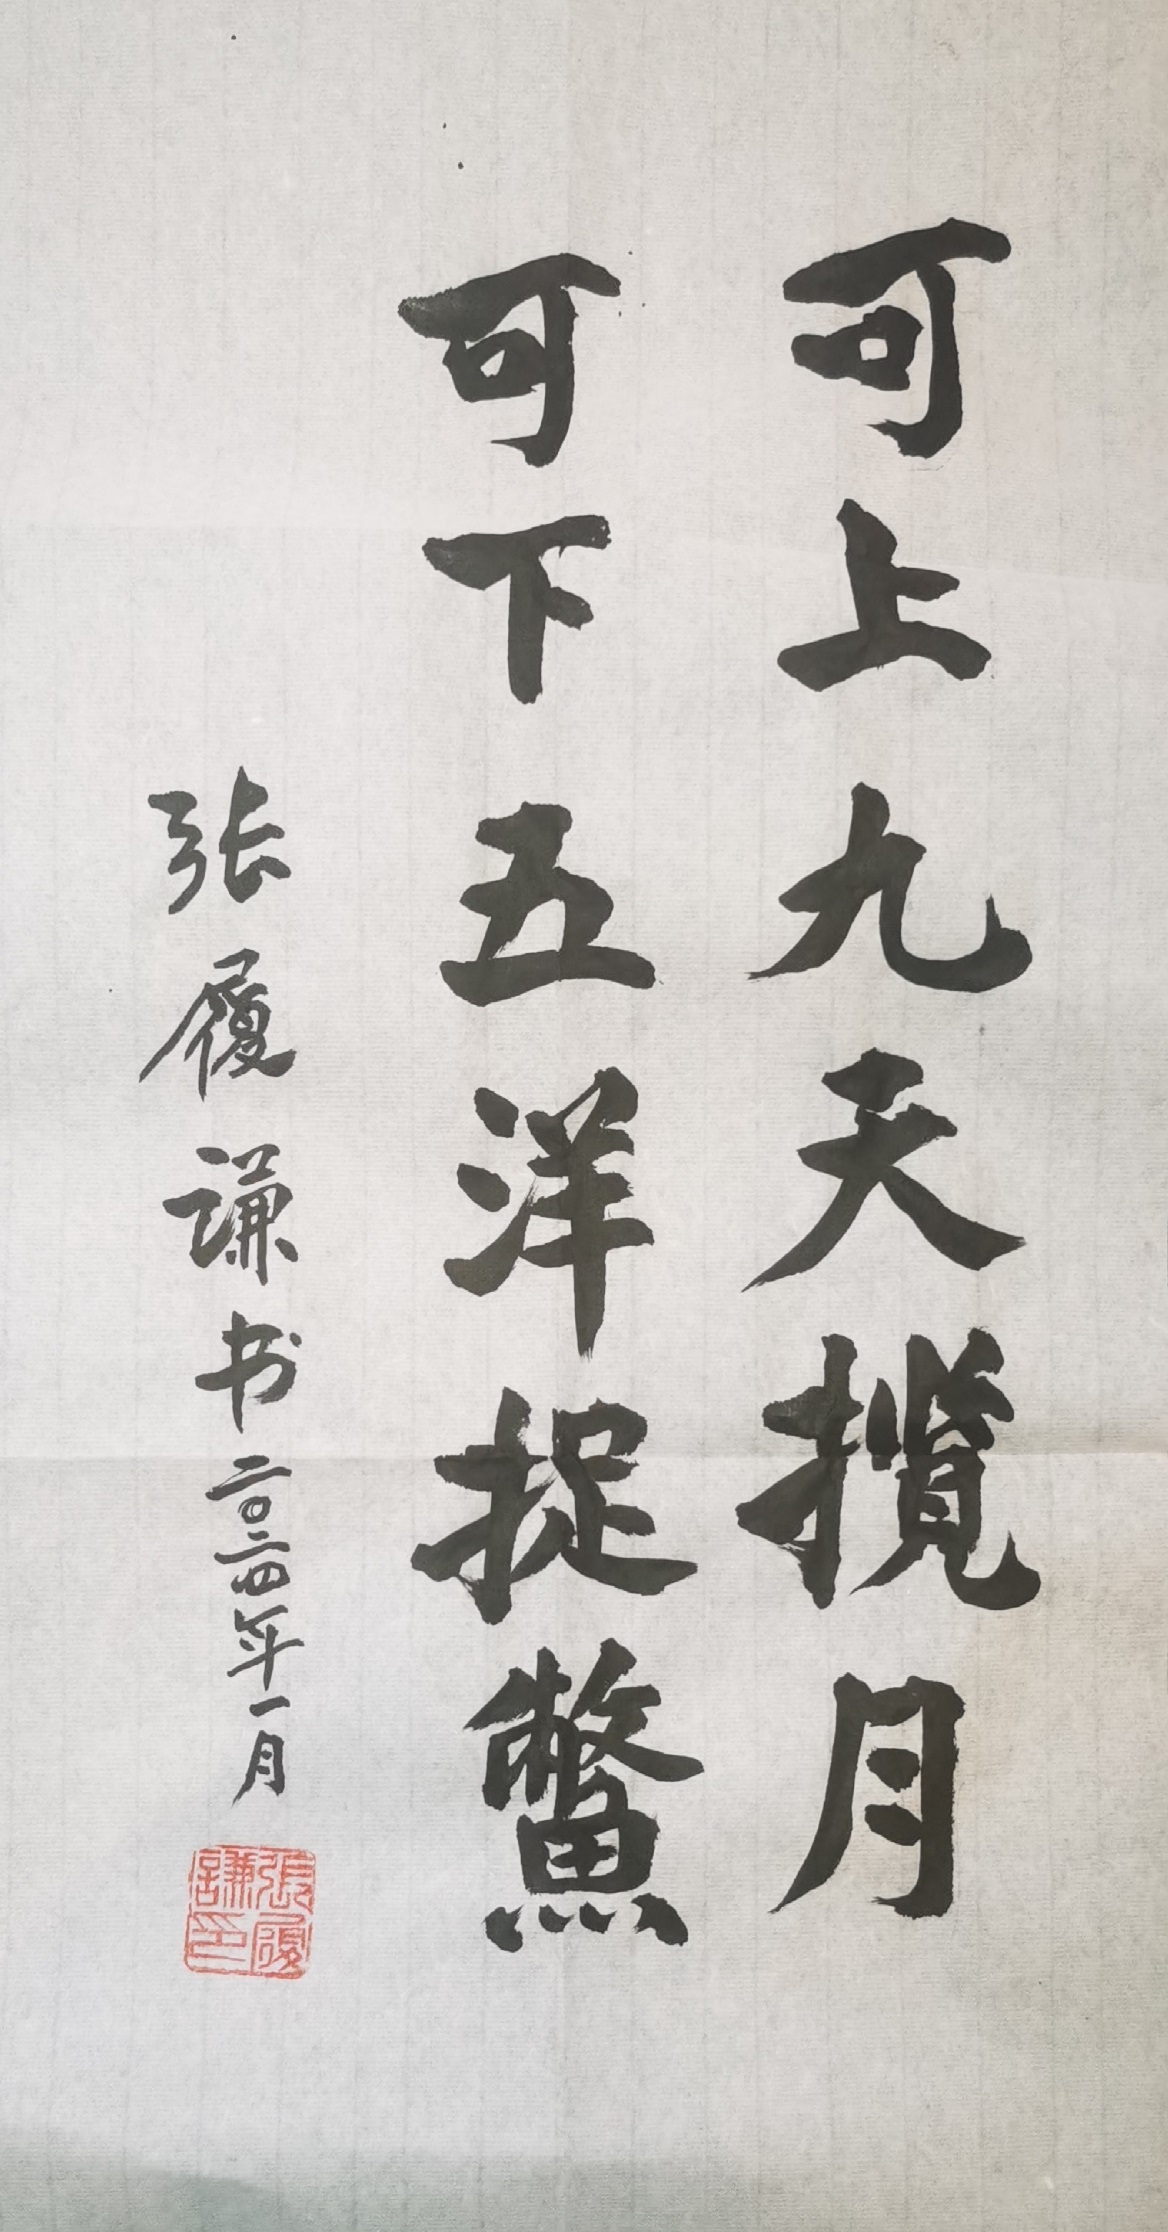 可上九天揽月
可下五洋捉鱉
张履谦书二〇二四年一月
張履謙印